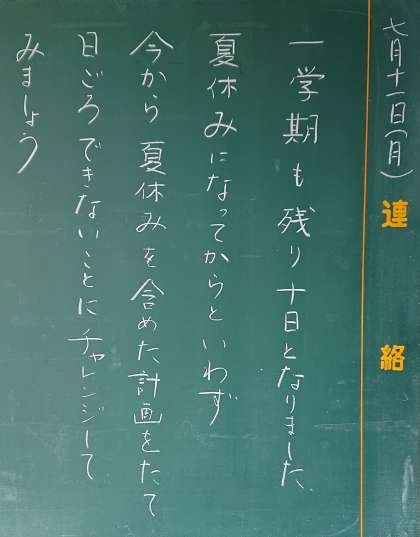 七月十一日(月)
連絡
一学期も残り十日となりました。
夏休みになってからといわず
今から夏休みを含めた計画をたて
日ごろできないことにチャレンジして
みましょう